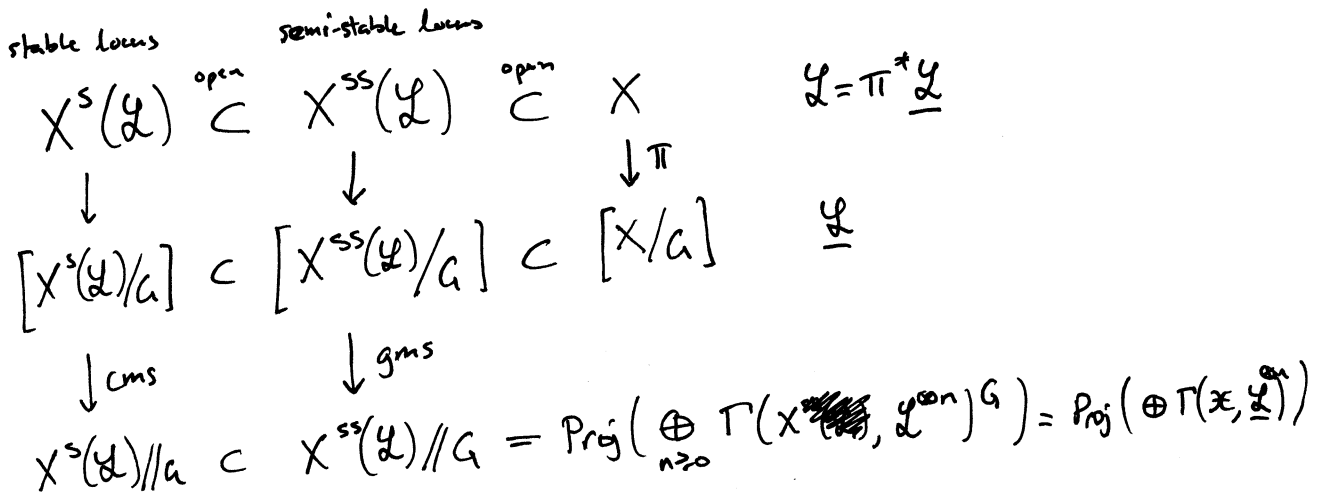 stable locus semi-stable locus
X^s(ℒ) open ⊂ X^ss(ℒ) open ⊂ X ℒ = π^* \underline{ℒ}
↓ ↓ ↓ π
[X^s(ℒ)/G] ⊂ [X^ss(ℒ)/G] ⊂ [X/G] \underline{ℒ}
↓ cms ↓ gms
X^s(ℒ)//G ⊂ X^ss(ℒ)//G = Proj(⊕_{n≥0} Γ(X, ℒ^{⊗n})^G) = Proj(⊕ Γ(𝒳, \underline{ℒ}^{⊗n}))